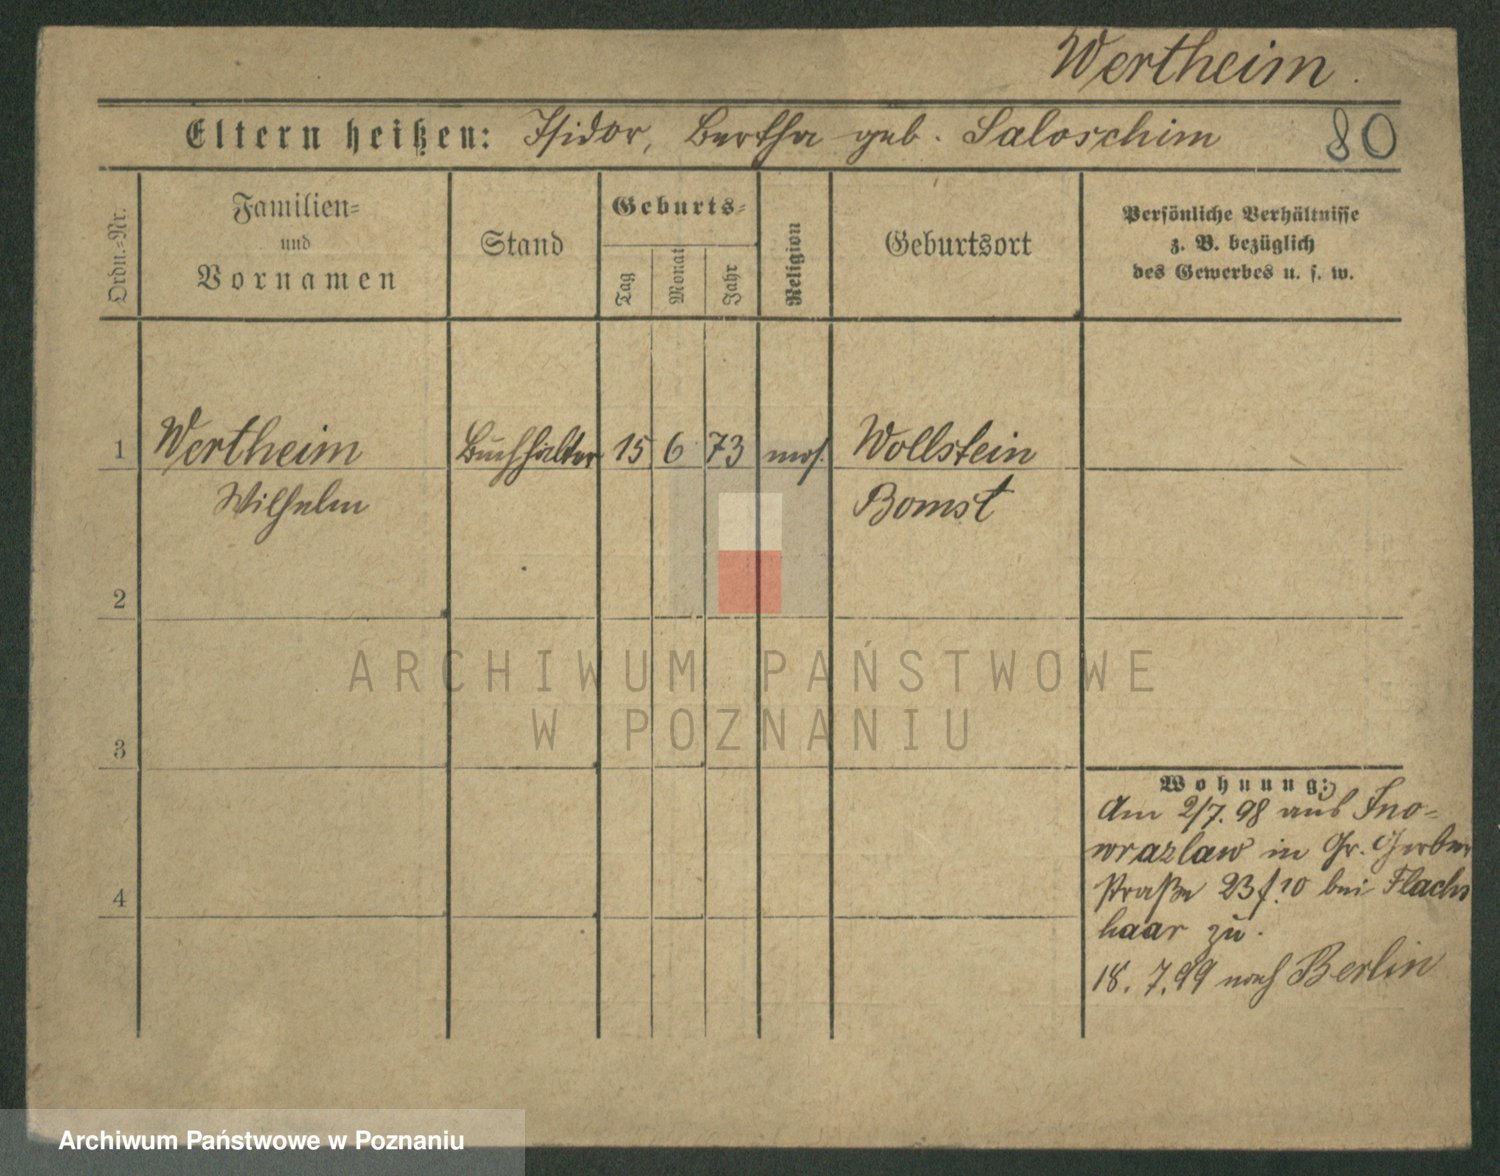 Wertheim.
Eltern heißen: Isidor, Bertha geb. Saloschim 80
Ordn.-Nr.
Familien-
und
Vornamen
Stand
Geburts-
Tag
Monat
Jahr
Religion
Geburtsort
Persönliche Verhältnisse
z. B. bezüglich
des Gewerbes u. s. w.
1 Wertheim Buchhalter 15 6 73 mos. Wollstein
Wilhelm Bomst
2
ARCHIWUM PAŃSTWOWE
W POZNANIU
3
Wohnung:
Am 2/7. 98 aus Ino-
wrazlaw in Gr. Gerber
straße 23 f. 10 bei Flachs
haar zu.
4
18. 7. 99 nach Berlin
Archiwum Państwowe w Poznaniu